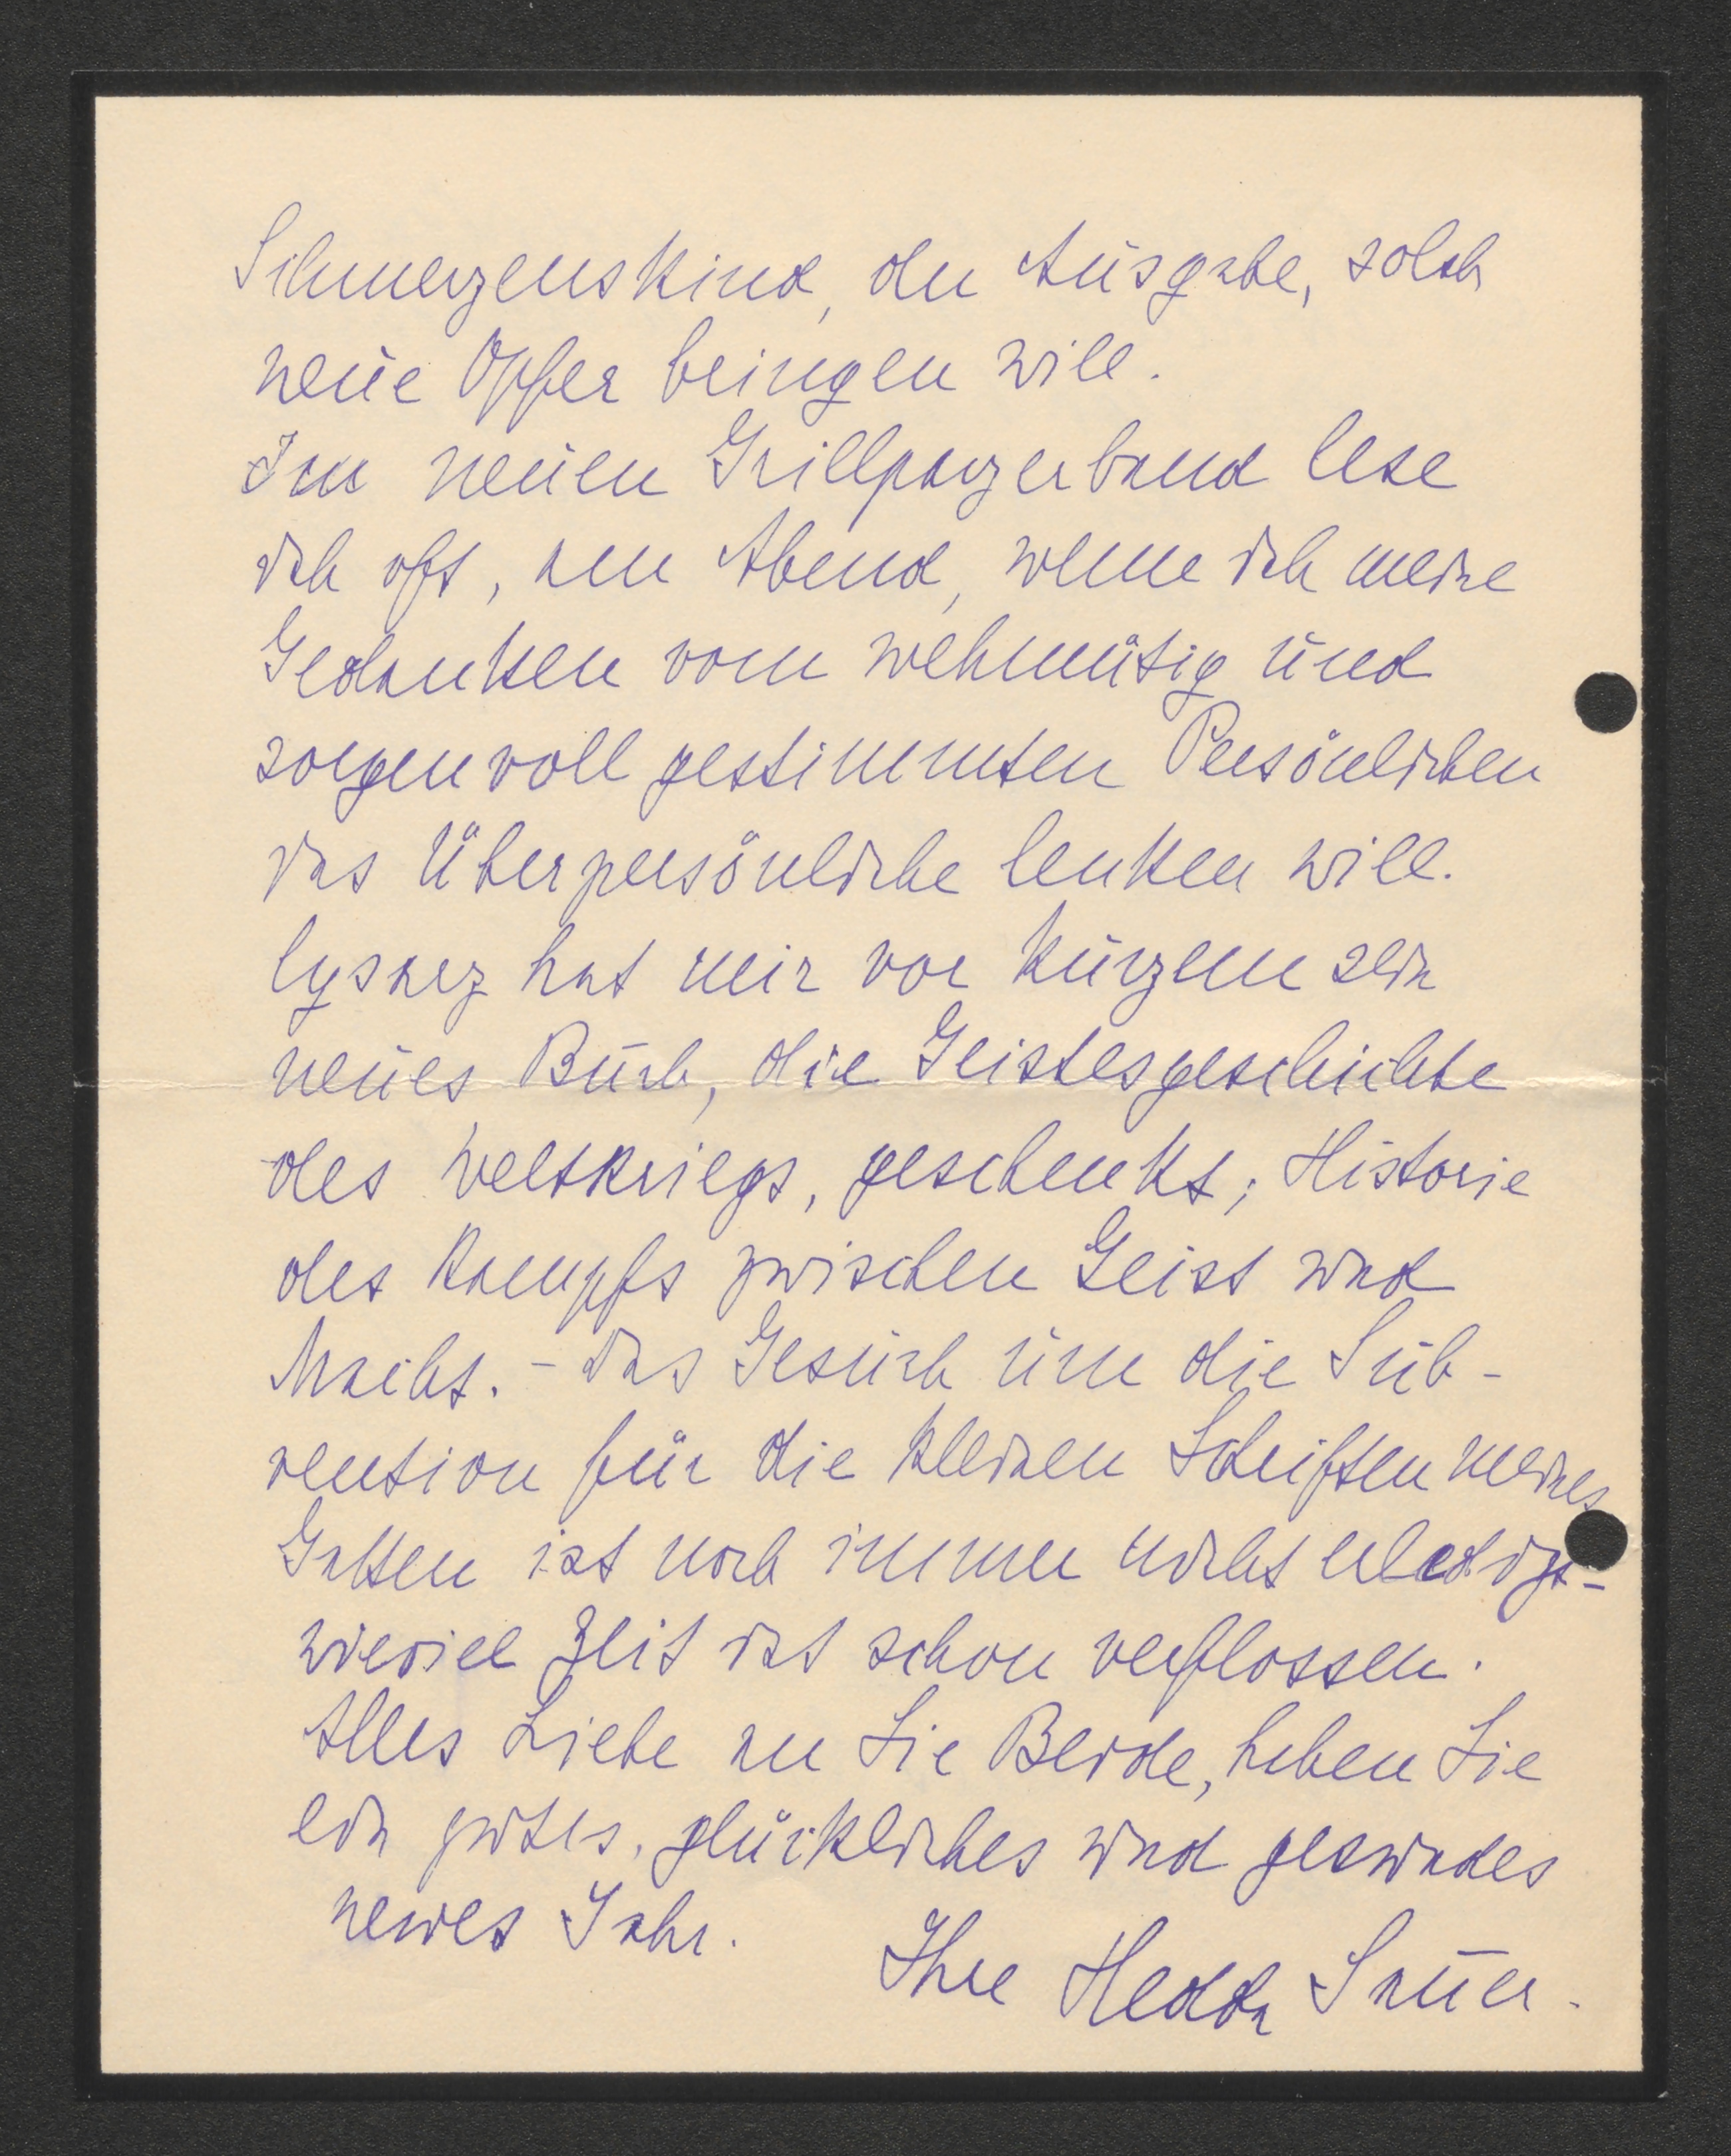 Schmerzenskind, der Ausgabe, solch
neue Opfer bringen will.
Im neuen Grillparzerband lese
ich oft, am Abend, wenn ich meine
Gedanken vom wehmütig und
sorgenvoll gestimmten Persönlichen
ins Überpersönliche lenken will.
Cysarz hat mir vor kurzem sein
neues Buch, die Geistesgeschichte
des Weltkriegs, geschenkt; Historie
des Kampfs zwischen Geist und
Macht. – Das Gesuch um die Sub-
vention für die kleinen Schriften meines
Gatten ist noch immer nicht erledigt –
wieviel Zeit ist schon verflossen.
Alles Liebe an Sie Beide, haben Sie
ein gutes, glückliches und gesundes
neues Jahr.
Ihre Hedda Sauer.